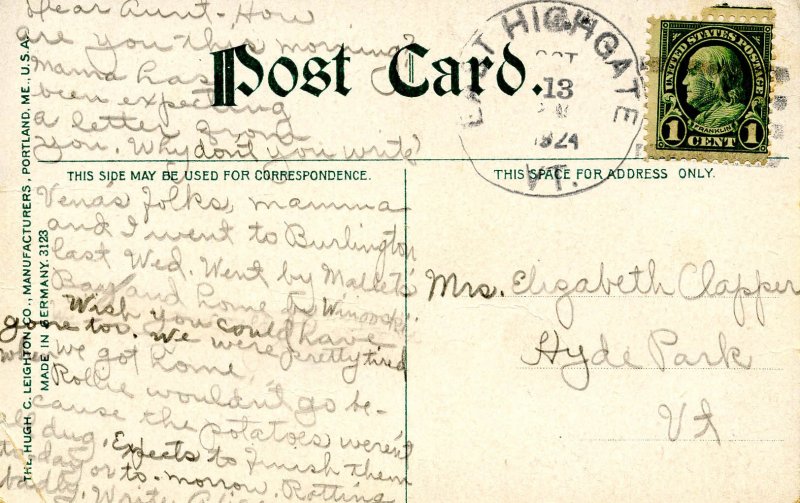 Dear Aunt - How
are you this morning?
Mama has
been expecting
a letter from
you. Why don't you write?
Post Card.
EAST HIGHGATE
OCT
13
1924
VT.
UNITED STATES POSTAGE
FRANKLIN
1 CENT 1
THIS SIDE MAY BE USED FOR CORRESPONDENCE.
THIS SPACE FOR ADDRESS ONLY.
Vena's folks, mamma
and I went to Burlington
last Wed. Went by Mallets
Bay and home by Winooski.
Wish you could have
gone too. We were pretty tired
when we got home.
Rollie wouldn't go be-
cause the potatoes weren't
all dug. Expects to finish them
to-day or to-morrow. Rotting
badly. Write
Mrs. Elizabeth Clapper
Hyde Park
Vt
THE HUGH C. LEIGHTON CO., MANUFACTURERS, PORTLAND, ME., U.S.A.
MADE IN GERMANY. 3123